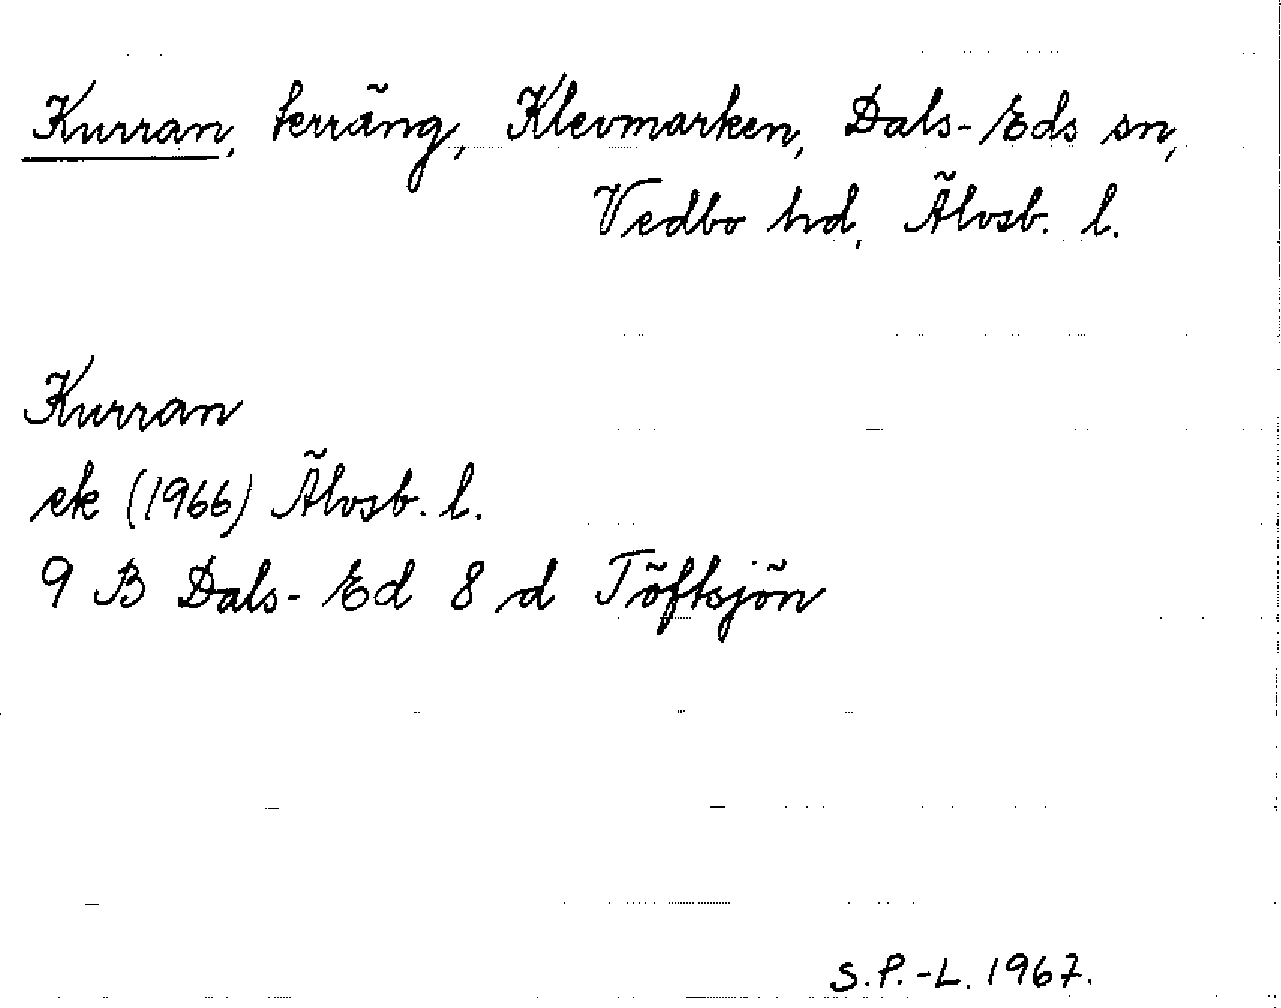 Kurran, terräng, Klevmarken, Dals-Eds sn,
Vedbo hd, Älvsb. l.
Kurran
ek (1966) Älvsb. l.
9 B Dals-Ed 8 d Töftsjön
S.P.-L. 1967.